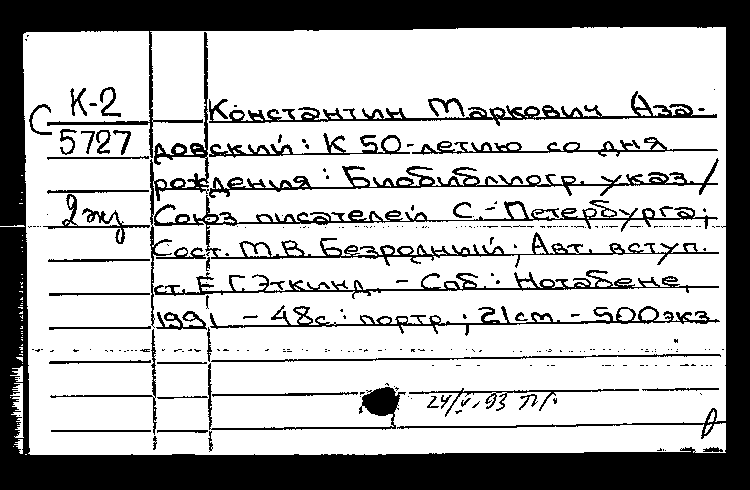 К-2
С
5727
2 экз
Константин Маркович Аза-
довский: К 50-летию со дня
рождения: Биобиблиогр. указ./
Союз писателей С.-Петербурга;
Сост. М.В. Безродный; Авт. вступ.
ст. Е.Г. Эткинд. - Спб.: Нотабене,
1991 - 48с.: портр.; 21cm. - 500экз
24/V.93